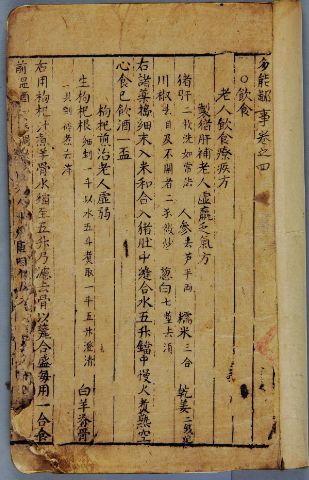 多能鄙事卷之四
○飲食
老人飲食療疾方
製猪肝補老人虛羸乏氣方
猪肝一枚洗如常法 人參去芦半兩 糯米三合 乾姜
川椒去目及不開者二 炒 葱白七莖去
右諸藥搗細末入米和合入猪肚中縫合水五升鐺中慢火煮熟空
心食已飲酒一盃
枸杞煎治老人虛弱
生枸杞根細剉一斗以水五斗煮取一斗五升澄清 白羊脊骨
一具剉碎
右用枸杞汁煮羊骨水緬至五升乃濾去骨以瓷合盛每用一合食
前温酒